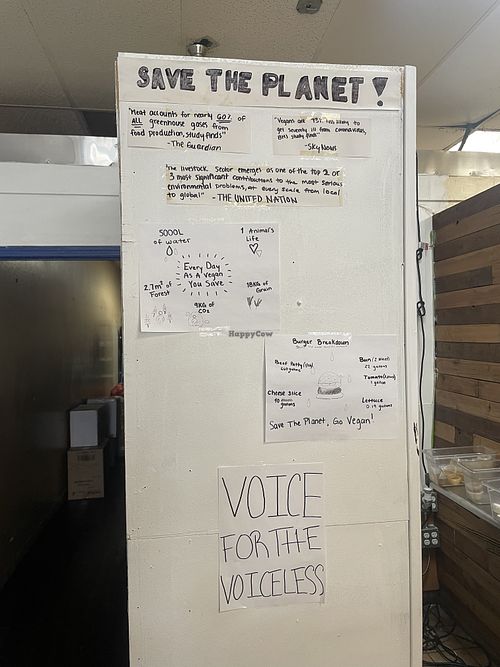 SAVE THE PLANET!
"Meat accounts for nearly 60% of
ALL greenhouse gases from
food production, study finds"
-The Guardian
"Vegans are 73% less likely to
get severely ill from coronavirus,
study finds"
-Sky News
"The livestock sector emerges as one of the top 2 or
3 most significant contributions to the most serious
environmental problems, at every scale from local
to global" - THE UNITED NATION
5000L
of water
1 Animal's
Life
Every Day
As A Vegan
You Save
2.7m² of
Forest
18KG of
Grain
9KG of
CO2
HappyCow
Burger Breakdown
Beef Patty
gallons
Bun (2 slices)
22 gallons
Tomato
1 gallon
Cheese slice
gallons
Lettuce
gallons
Save The Planet, Go Vegan!
VOICE
FOR THE
VOICELESS